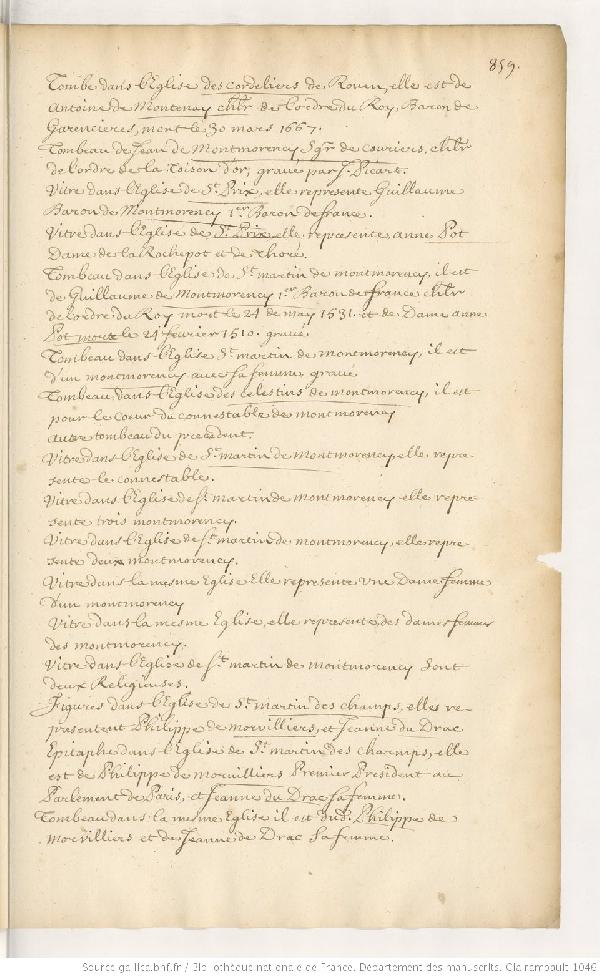 859.
Tombe dans l'Eglise des cordeliers de Rouen, elle est de
Antoine de Montenay chlr de l'ordre du Roy, Baron de
Garencieres, mort le 30 mars 1667.
Tombeau de Jean de Montmorency Sgr de couriers, chlr
de l'ordre de la Toison d'or, gravé par J. Picart.
Vitre dans l'Eglise de St Prix, elle represente Guillaume
Baron de Montmorency 1er Baron de france.
Vitre dans l'Eglise de St Prix elle represente anne Pot
Dame de la Rochepot et de thoré.
Tombeau dans l'Eglise de St martin de montmorency, il est
de Guillaume de Montmorency 1er Baron de france chlr
de l'ordre du Roy mort le 24 de may 1531. et de Dame anne
Pot morte le 24 fevrier 1510. gravé.
Tombeau dans l'Eglise St martin de montmorency, il est
d'un montmorency avec sa femme, gravé
Tombeau dans l'Eglise des celestins de montmorency, il est
pour le coeur du connestable de montmorency
autre tombeau du precedent.
Vitre dans l'Eglise de St martin de montmorency, elle repre-
sente le connestable.
Vitre dans l'Eglise de St martin de montmorency elle repre-
sente trois montmorency.
Vitre dans l'Eglise de St martin de montmorency, elle repre-
sente deux montmorency.
Vitre dans la mesme Eglise Elle represente une Dame femme
d'un montmorency
Vitre dans la mesme Eglise, elle represente des dames femmes
des montmorency.
Vitre dans l'Eglise de St martin de montmorency sont
deux Religieuses.
Figures dans l'Eglise de St martin des champs, elles re-
presentent Philippe de morvilliers, et Jeanne du Drac
Epitaphe dans l'Eglise de St martin des champs, elle
est de Philippe de morvilliers Premier President au
Parlement de Paris, et Jeanne du Drac sa femme.
Tombeau dans la mesme Eglise il est dud. Philippe de
morvilliers et de Jeanne de Drac sa femme.
Source gallica.bnf.fr / Bibliothèque nationale de France. Département des manuscrits. Clairambault 1046